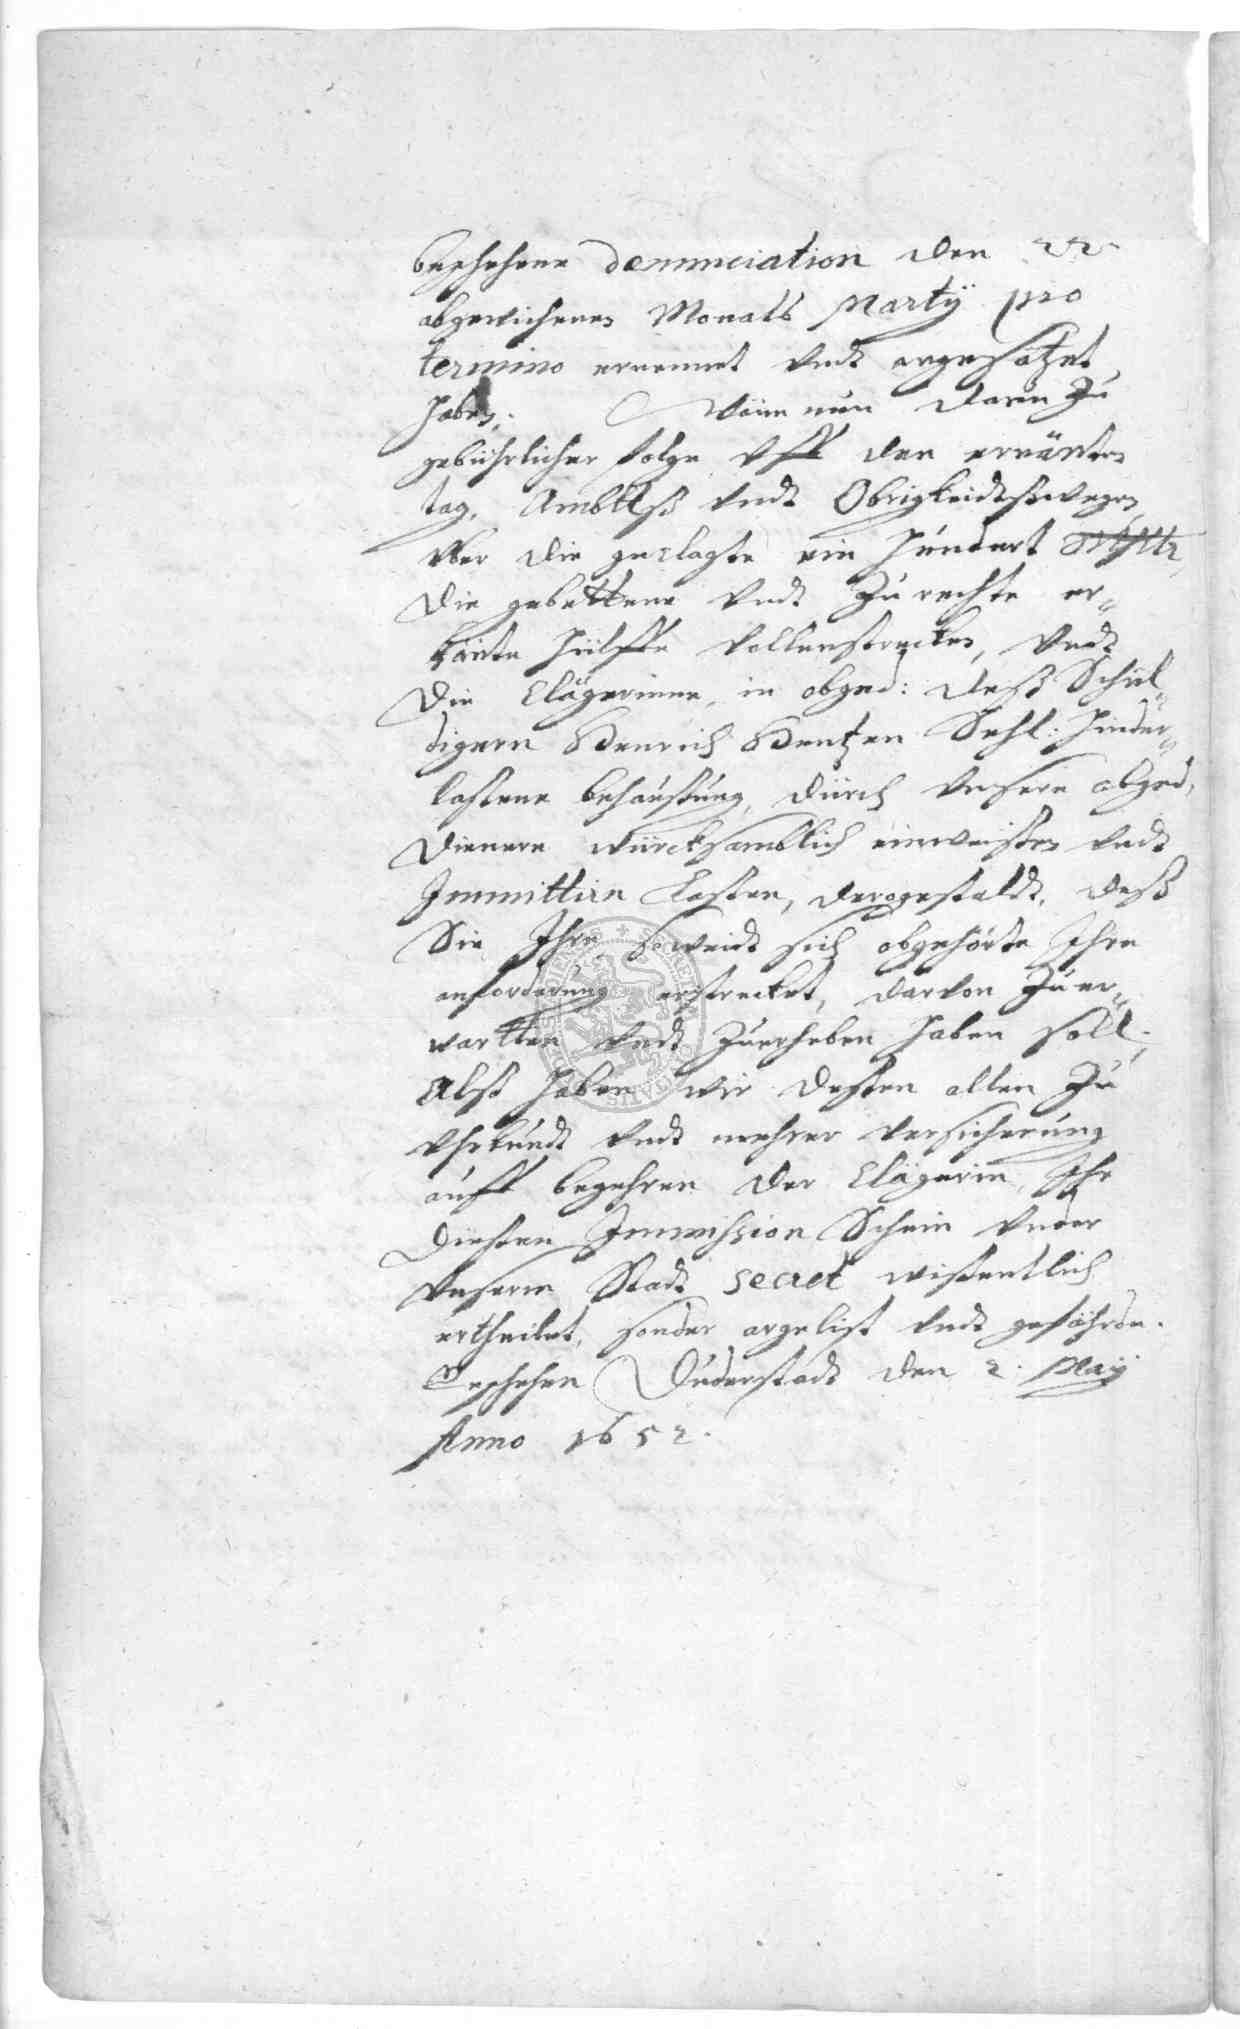 beschehene denunciation den 22
abgewichenen Monats Martÿ pro
termino ernennet undt angesatzet
haben. Wann nun darin zu
gebührlicher folge uff den ernänten
tag, Ambtß undt Obrigkeidtßwegen
uber die geclagte ein hundert
die gebettene undt zu rechte er„
kante hülffe vollenstrecket, undt
die Clägerinne, in obged: deß Schul„
digern Henrich Hentzen Sehl: hinder„
laßene behaußung, durch unsere obged,
Dienere würcksamblich einweißen undt
Immittirn laßen, derogestaldt, deß
Sie Ihre soweidt sich obgehörte Ihre
anforderung erstrecket, darvon zu er„
wartten undt zuerheben haben soll.
Alß haben wir deßen allen zu
Uhrkundt undt mehrer versicherung
auff begehren der Clägerin, Ihr
dießen Immission Schein under
unserm Stadt secret wißentlich
ertheilet, sonder argelist undt gefährde.
Geschehen Duderstadt den 2. Maÿ
Anno 1652.